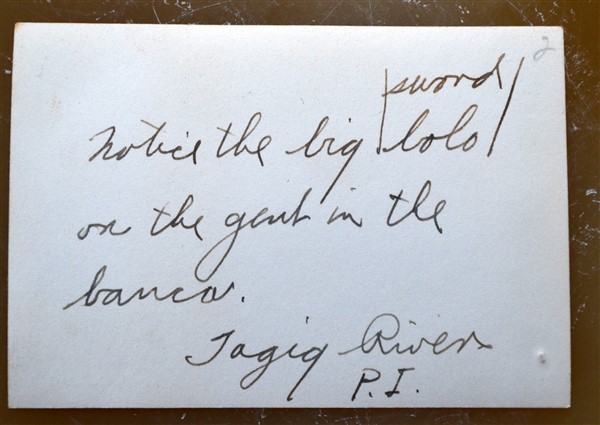 2
sword
Notice the big bolo
on the gent in the
banca.
Tagig River
P.I.